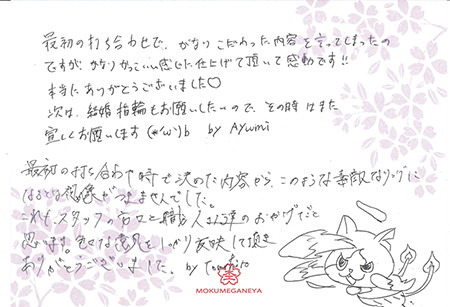 最初の打ち合わせで、かなりこだわった内容を言ってしまったの
ですが、かなりかっこいい感じに仕上げて頂いて感動です!!
本当にありがとうございました♡
次は、結婚指輪もお願いしたいので、その時はまた
宜しくお願いします(*'ω')b by Ayumi
最初の打ち合わせ時で決めた内容から、このような素敵なリングに
なるとは想像がつきませんでした。
これも、スタッフの方々と職人さん達のおかげだと
思います。色々な意見をしっかり反映して頂き
ありがとうございました。by Tomohiro
MOKUMEGANEYA